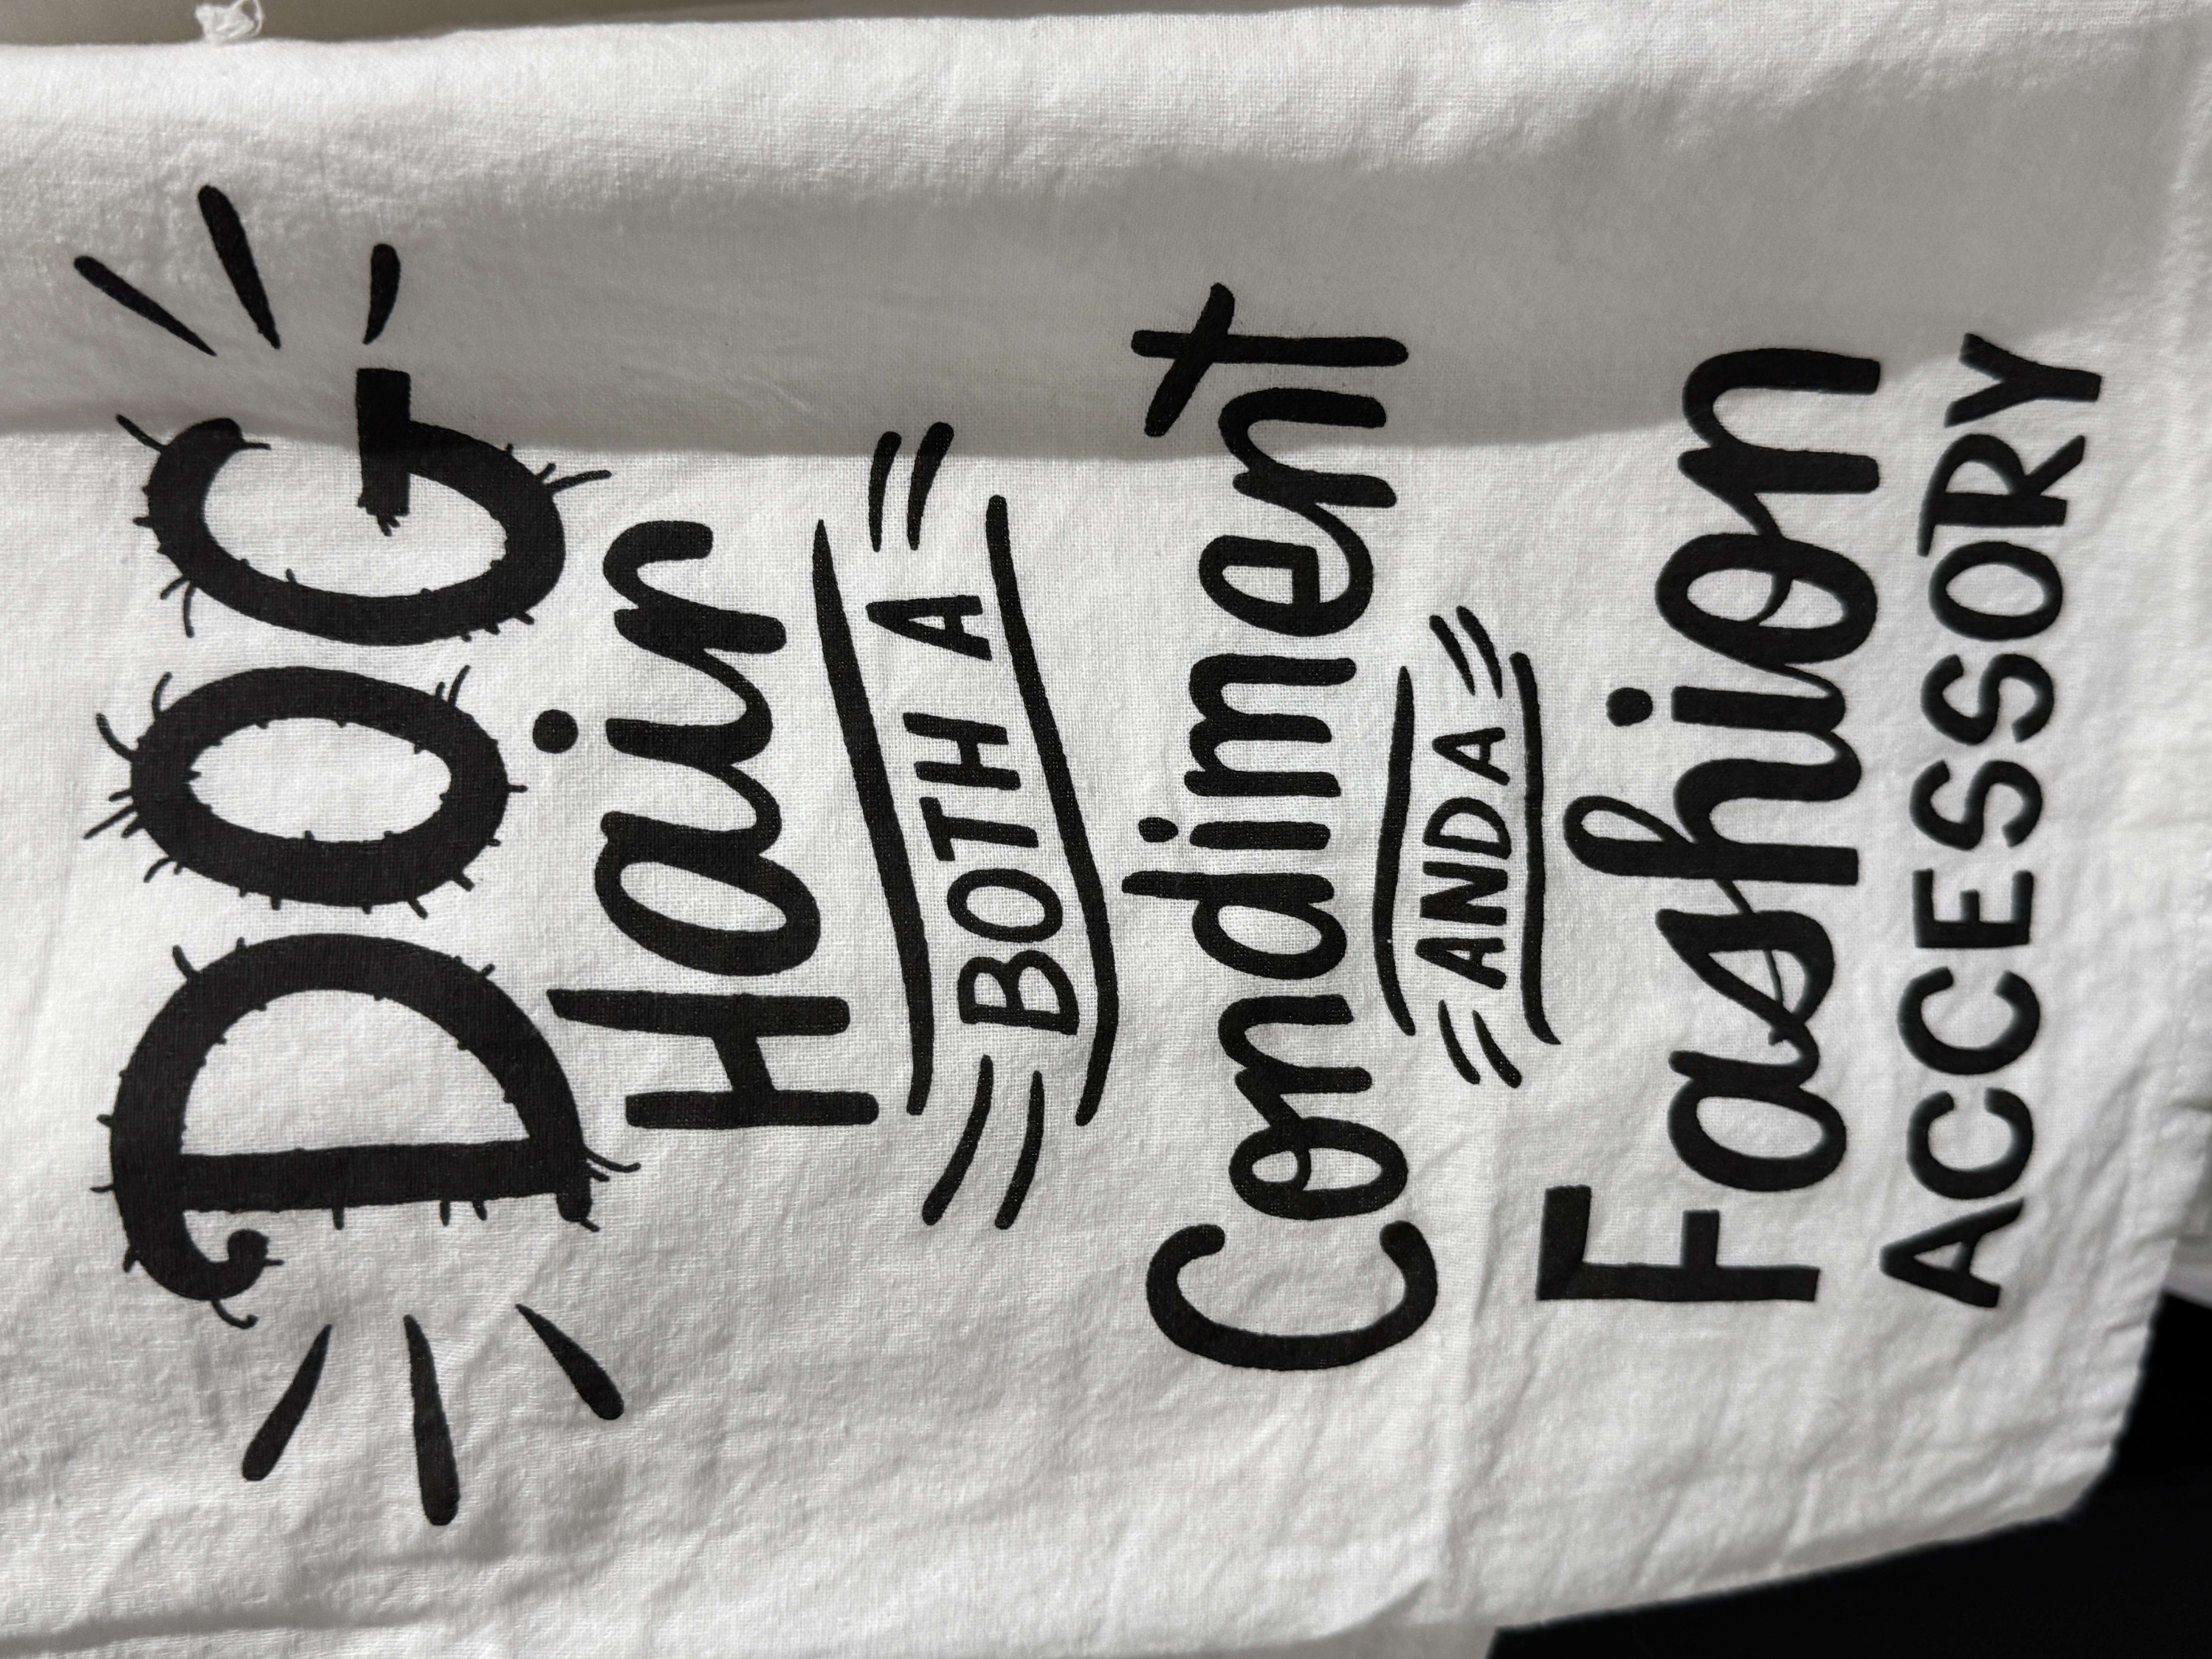 DOG
Hair
BOTH A
Condiment
AND A
Fashion
ACCESSORY